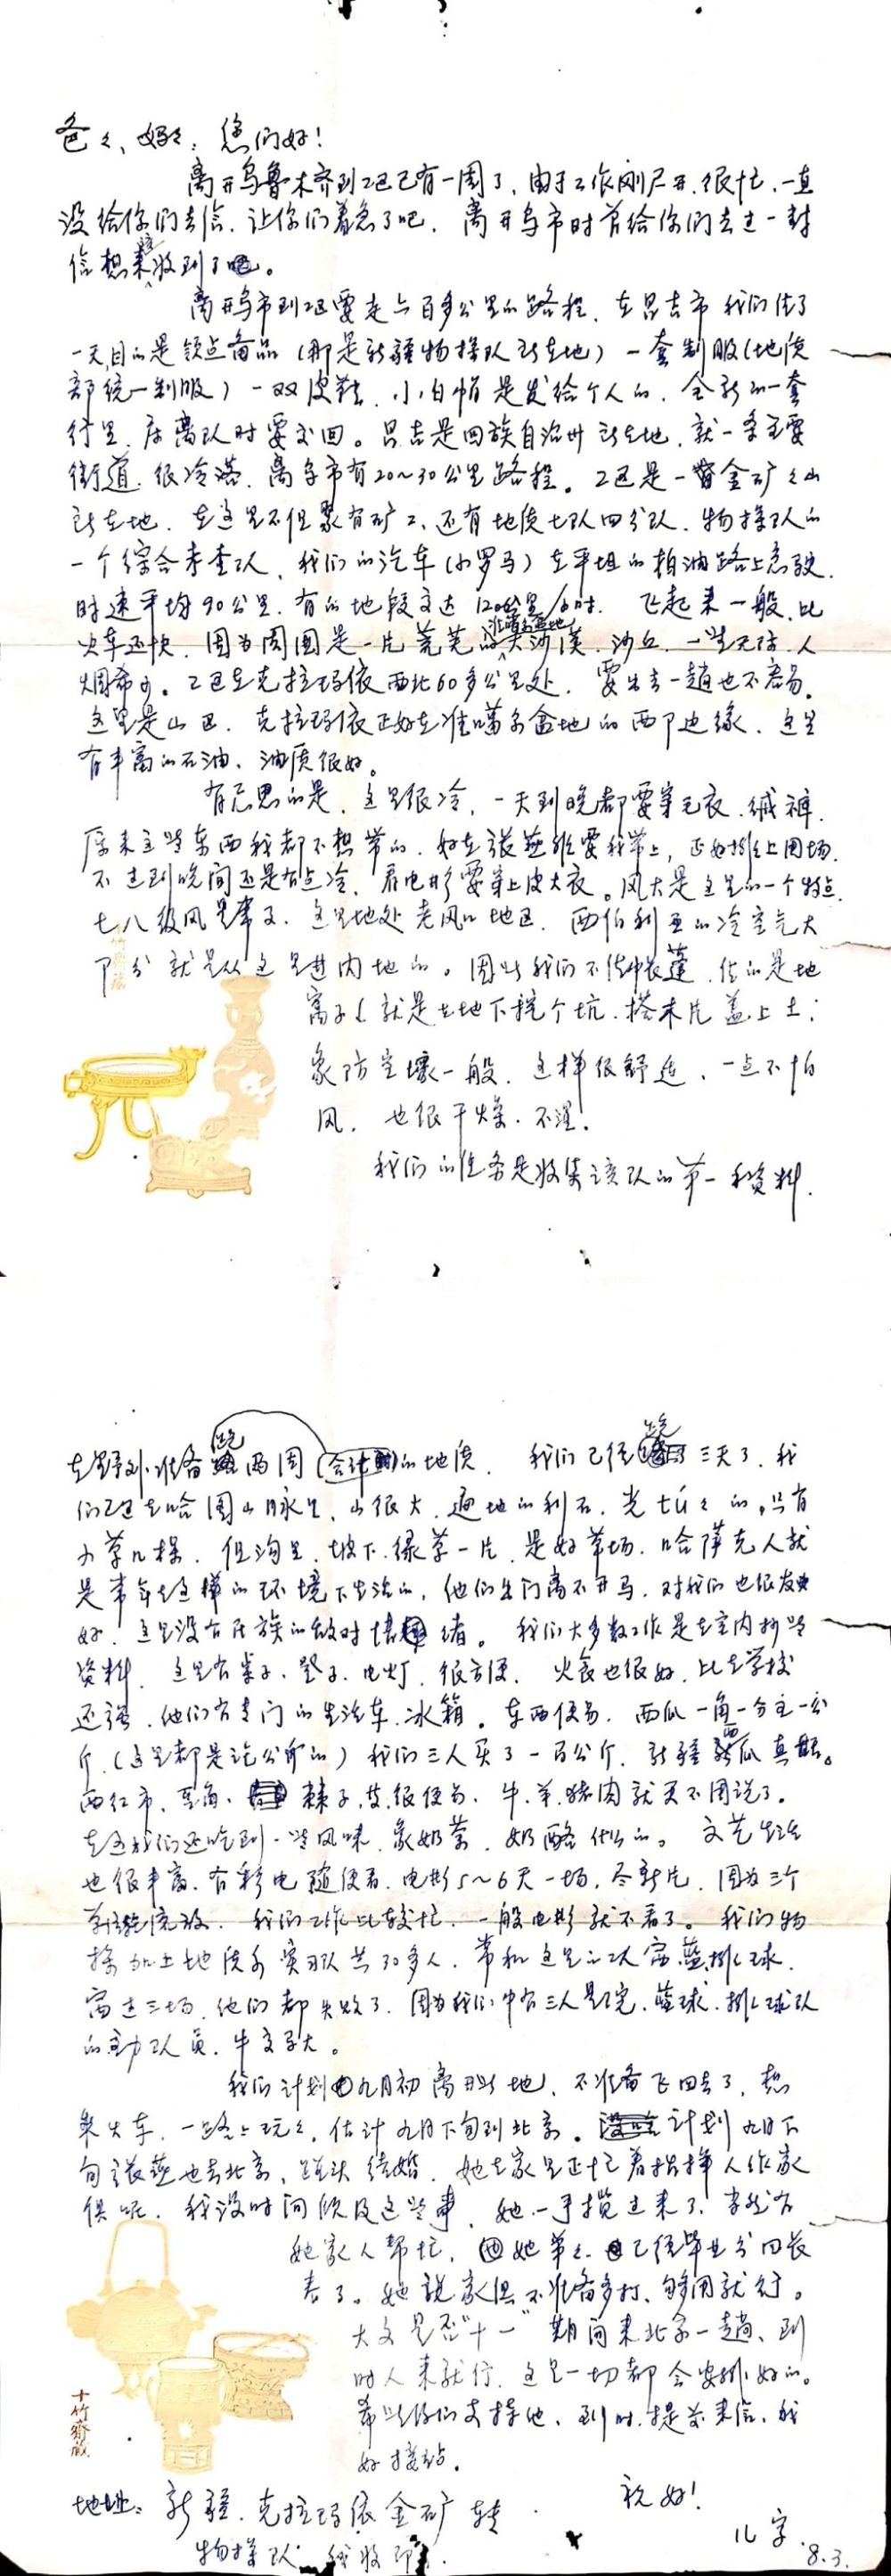 爸々、妈々：您们好！
离开乌鲁木齐到工区已有一周了，由于工作刚展开，很忙，一直
没给你们去信，让你们着急了吧，离开乌市时曾给你们去过一封
信想来该收到了吧。
离开乌市到工区要走六百多公里的路程，在昌吉市我们住了
一天，目的是领点备品（那是新疆物探队所在地）一套制服（地质
部统一制服）一双皮鞋、小白帽是发给个人的，全新的一套
行里，在离队时要交回。昌吉是回族自治州所在地，就一条主要
街道，很冷落，离乌市有20～30公里路程。工区是一金矿々山
所在地，在这里不但聚有矿工、还有地质七队四分队、物探队的
一个综合考查队，我们的汽车（小罗马）在平坦的柏油路上急驶，
时速平均90公里，有的地段竟达120公里/小时，飞起来一般，比
火车还快，因为周围是一片荒芜的准噶尔盆地大沙漠，沙丘，一望无际，人
烟希少。工区在克拉玛依西北60多公里处，要出去一趟也不容易。
这里是山区，克拉玛依正好在准噶尔盆地的西部边缘，这里
有丰富的石油，油质很好。
有意思的是，这里很冷，一天到晚都要穿毛衣，绒裤，
原来这些东西我都不想带的，好在张燕非要我带上，正好排上用场，
不过到晚间还是有点冷，看电影要穿上皮大衣。风大是这里的一个特点，
七八级风是常事，这里地处老风口地区，西伯利亚的冷空气大
部分就是从这里进内地的。因此我们不住帐篷，住的是地
窝子（就是在地下挖个坑，搭木片盖上土；
象防空壕一般，这样很舒适，一点不怕
风，也很干燥，不湿。
我们的任务是收集该队的第一手资料，
在野外准备跑两周（合计）的地质，我们已经跑三天了，我
们工区在哈图山脉里，山很大，遍地的利石，光秃々的，只有
小草几棵，但沟里，坡下，绿草一片，是好草场，哈萨克人就
是常年在这样的环境下生活的，他们出门离不开马，对我们也很友
好，这里没有民族的敌对情绪。我们大多数工作是在室内抄些
资料，这里有桌子、登子、电灯，很方便，火食也很好，比在学校
还强，他们有专门的生活车，冰箱。东西便易，西瓜一角一分钱一公
斤，（这里都是论公斤的）我们三人买了一百公斤，新疆西瓜真甜。
西红市、豆角、辣子，茄很便易，牛、羊、猪肉就更不用说了。
在这我们还吃到一些风味，象奶茶，奶酪什么的。文艺生活
也很丰富，有彩电随便看，电影5～6天一场，尽新片，因为三个
单位轮流放，我们工作比较忙，一般电影就不看了。我们物
探加上地质系实习队共30多人，常和这里的工人赛蓝排球，
赛过三场，他们都失败了，因为我们中有三人是院蓝球、排球队
的主力队员，牛支子大。
我们计划九月初离开此地，不准备飞回去了，想
乘火车，一路上玩々，估计九月下旬到北京。计划九月下
旬张燕也去北京，碰头结婚，她在家里正忙着指挥人作家
俱呢，我没时间顾及这些事，她一手揽过来了，当然有
她家人帮忙，她弟々已经毕业分回长
春了。她说家俱不准备多打，够用就行。
大文是否“十一”期间来北京一趟，到
时人来就行，这里一切都会安排好的。
希望你们支持他，到时，提前来信，我
好接站。
祝好！
地址：新疆、克拉玛依金矿转
物探队 我收即可
儿字
8.3.
十竹斋藏